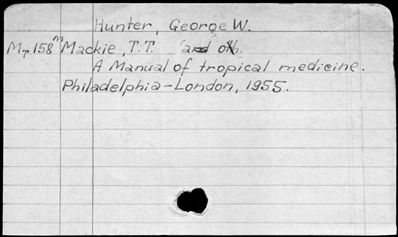 Hunter, George W.
M7158 m Mackie, T.T. and oth.
A Manual of tropical medicine.
Philadelphia-London, 1955.